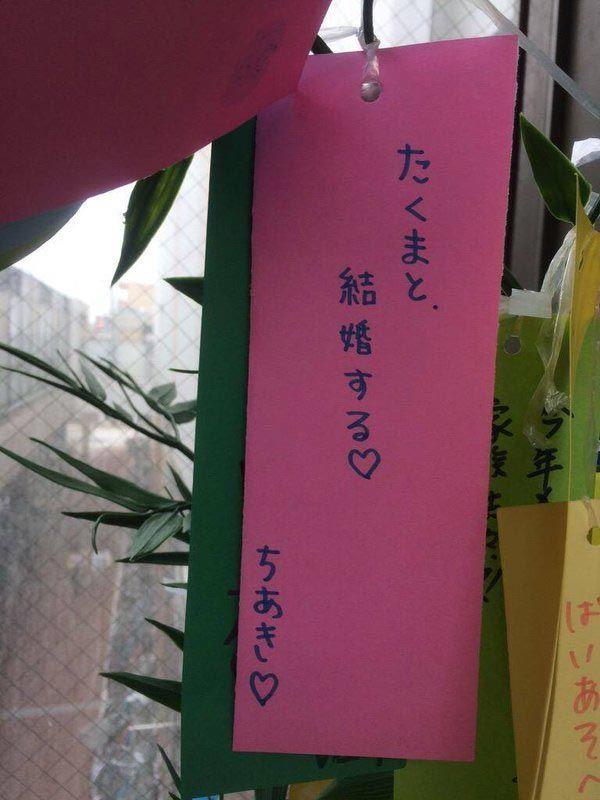 たくまと、
結婚する♡
ちあき♡
今年も
家族
ばいあそべ